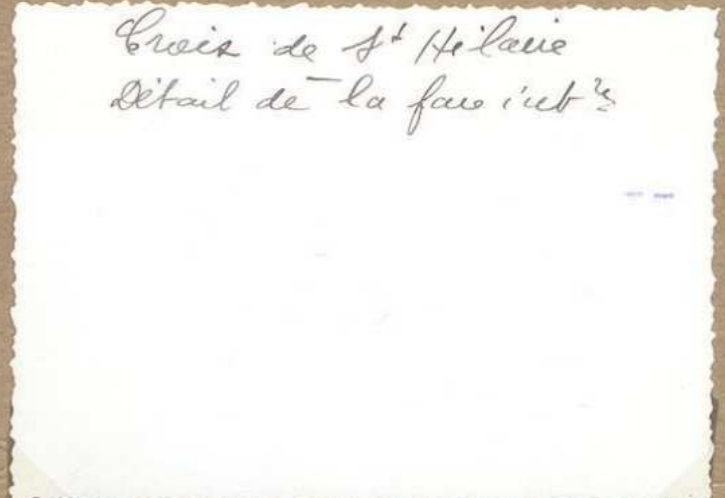 Croix de St Hilaire
Détail de la face intre